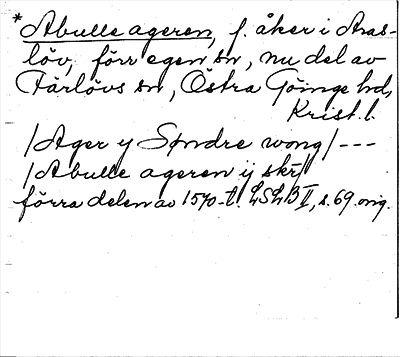 * Abulle ageren, f. åker i Aras-
löv, förr egen sn, nu del av
Färlövs sn, Östra Göinge hd,
Krist. l.
/Ager y Søndre wong/ ---
/Abulle ageren ij skr//
förra delen av 1570-t. LSLB II, s. 69 orig.